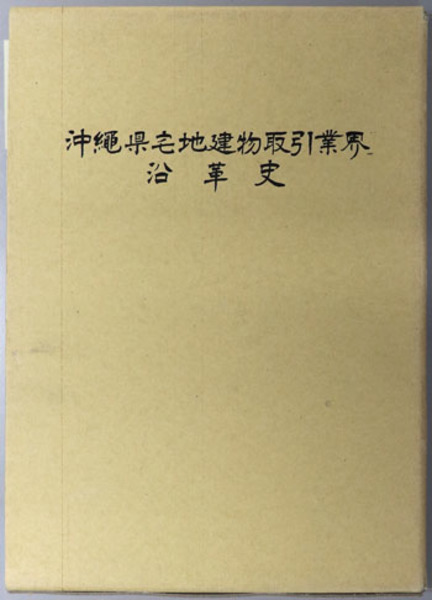 沖繩県宅地建物取引業界
沿革史